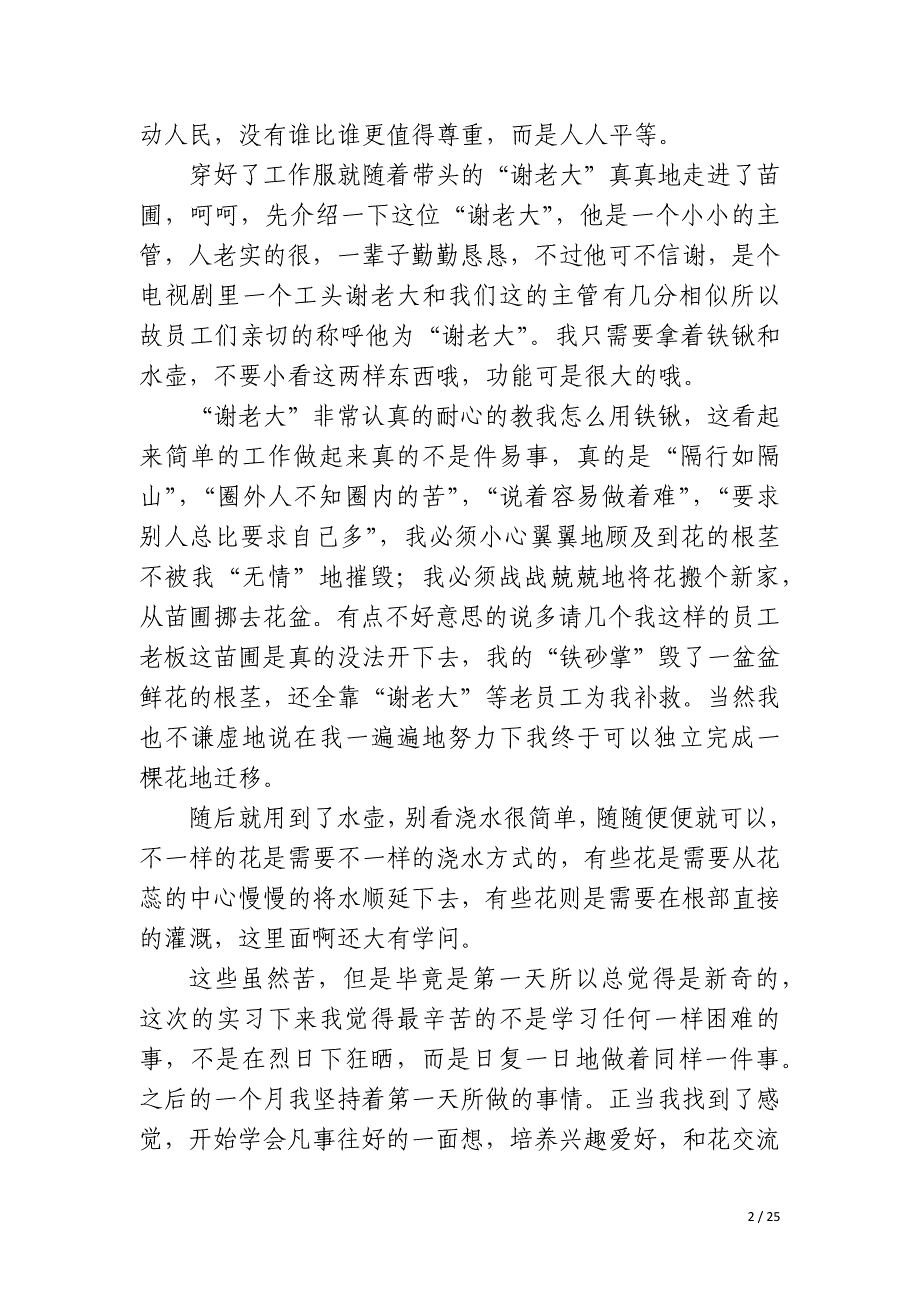 动人民，没有谁比谁更值得尊重，而是人人平等。
穿好了工作服就随着带头的“谢老大”真真地走进了苗
圃，呵呵，先介绍一下这位“谢老大”，他是一个小小的主
管，人老实的很，一辈子勤勤恳恳，不过他可不信谢，是个
电视剧里一个工头谢老大和我们这的主管有几分相似所以
故员工们亲切的称呼他为“谢老大”。我只需要拿着铁锹和
水壶，不要小看这两样东西哦，功能可是很大的哦。
“谢老大”非常认真的耐心的教我怎么用铁锹，这看起
来简单的工作做起来真的不是件易事，真的是“隔行如隔
山”，“圈外人不知圈内的苦”，“说着容易做着难”，“要求
别人总比要求自己多”，我必须小心翼翼地顾及到花的根茎
不被我“无情”地摧毁；我必须战战兢兢地将花搬个新家，
从苗圃挪去花盆。有点不好意思的说多请几个我这样的员工
老板这苗圃是真的没法开下去，我的“铁砂掌”毁了一盆盆
鲜花的根茎，还全靠“谢老大”等老员工为我补救。当然我
也不谦虚地说在我一遍遍地努力下我终于可以独立完成一
棵花地迁移。
随后就用到了水壶，别看浇水很简单，随随便便就可以，
不一样的花是需要不一样的浇水方式的，有些花是需要从花
蕊的中心慢慢的将水顺延下去，有些花则是需要在根部直接
的灌溉，这里面啊还大有学问。
这些虽然苦，但是毕竟是第一天所以总觉得是新奇的，
这次的实习下来我觉得最辛苦的不是学习任何一样困难的
事，不是在烈日下狂晒，而是日复一日地做着同样一件事。
之后的一个月我坚持着第一天所做的事情。正当我找到了感
觉，开始学会凡事往好的一面想，培养兴趣爱好，和花交流
2 / 25